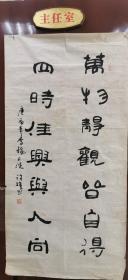 主任室
萬物靜觀皆自得
四時佳興與人同